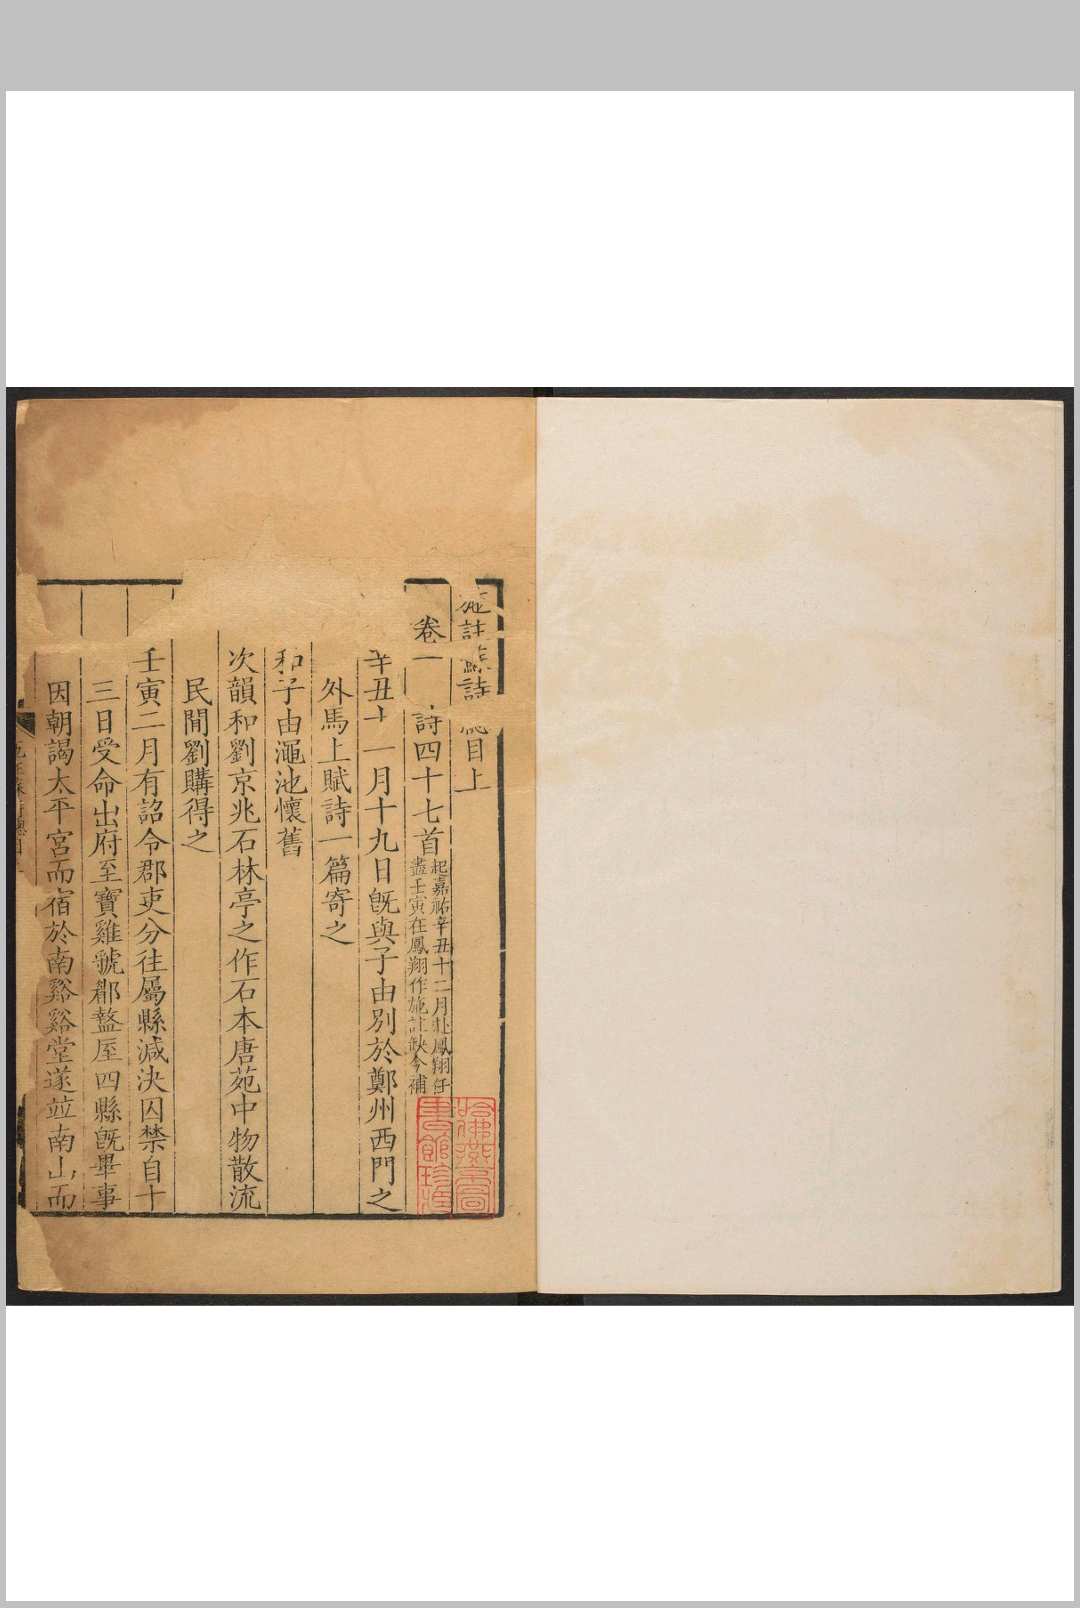 施註蘇詩總目上
卷一 詩四十七首 起嘉祐辛丑十二月赴鳳翔任
盡壬寅在鳳翔作施註缺今補
辛丑十一月十九日旣與子由別於鄭州西門之
外馬上賦詩一篇寄之
和子由澠池懷舊
次韻和劉京兆石林亭之作石本唐苑中物散流
民閒劉購得之
壬寅二月有詔令郡吏分往屬縣減決囚禁自十
三日受命出府至寶雞虢郿盩厔四縣旣畢事
因朝謁太平宮而宿於南谿谿堂遂並南山而
哈佛燕京圖
書館珍藏